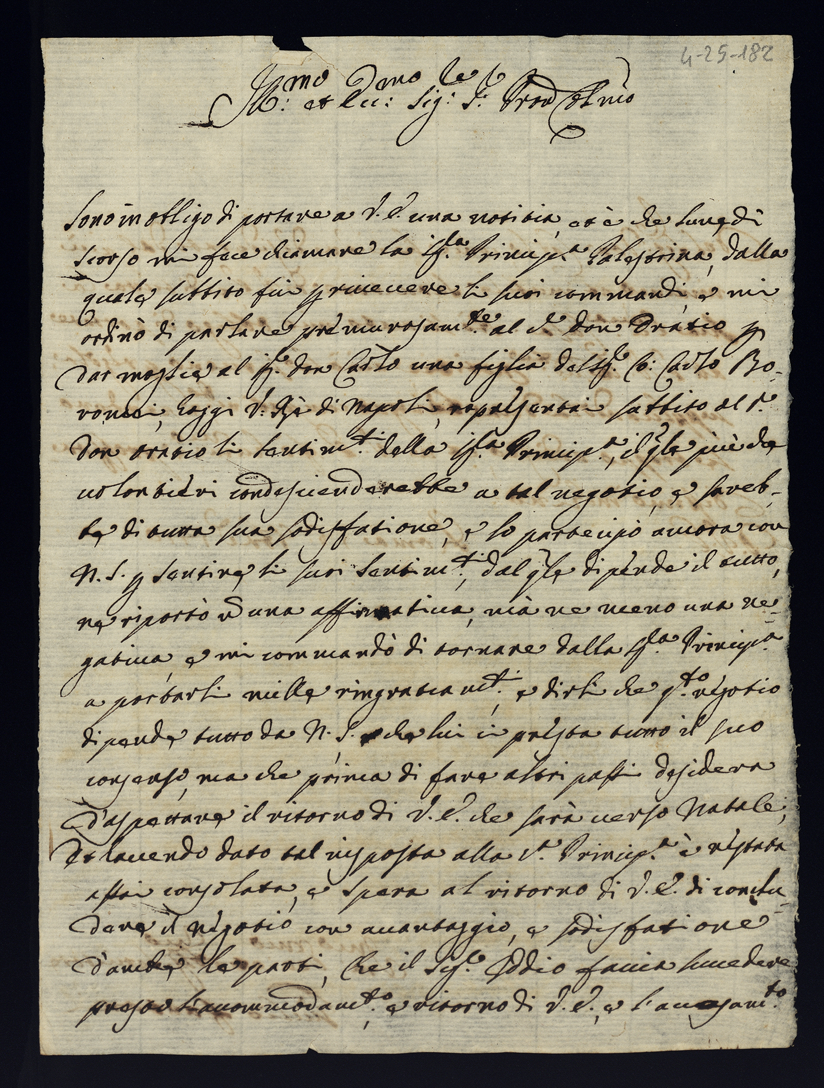 4-25-182
Ill:mo et Ecc:mo Sig:re Sr. Pron Colmo
Sono in obligo di portare a V.E. una notitia, et è che lunedì
scorso mi fece chiamare la Sig.ra Princip.a Palestrina, dalla
quale subbito fui p riceuere li suoi commandi, e mi
ordinò di parlare premurosam.te al Sr Don Oratio p
dar moglie al Sigr Don Carlo una figlia del Sigr Co: Carlo Bo-
romei, hoggi V. Rè di Napoli, rapresentai subbito al Sr.
Don Oratio li sentim.ti della Sig.ra Princip.a, il qle più che
uolontieri condescienderebbe a tal negotio, e sareb-
be di tutta sua sodisfatione, e lo partecipò ancora con
N.S. p sentire li suoi sentim.ti, dal qle dipende il tutto,
ne riportò una affirmatiua, mà ne meno una ne-
gatiua, e mi commandò di tornare dalla Sig.ra Princip.a
a portarli mille ringratiam.ti, e dirli che q.to negotio
dipende tutto da N.S. e che lui ci presta tutto il suo
consenso, ma che prima di fare altri passi desidera
d'aspettare il ritorno di V.E. che sarà uerso Natale,
Et hauendo dato tal risposta alla Sra Princip.a è restata
assai consolata, e spera al ritorno di V.E. di conclu-
dere il negotio con auantaggio, e sodisfatione
d'ambe le parti, che il Sigr Iddio faccia succedere
presto l'accommodam.to, e ritorno di V.E., e l'